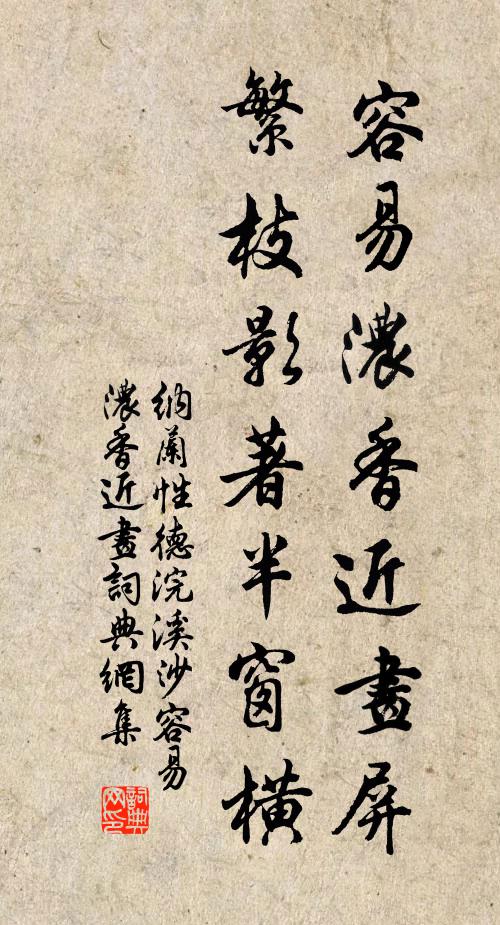 容易濃香近畫屏
繁枝影著半窗橫
納蘭性德浣溪沙容易
濃香近畫詞典網集
詞典
网印